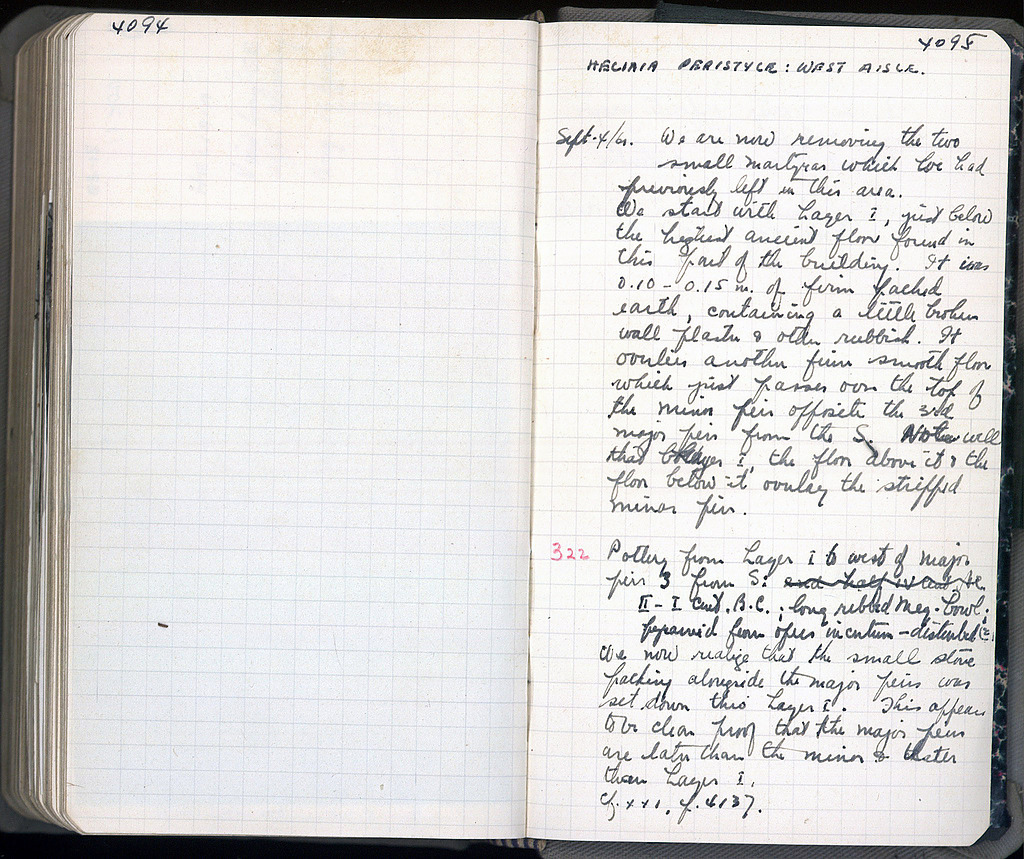 4094
4095
HELIAIA PERISTYLE: WEST AISLE.
Sept. 4/61. We are now removing the two
small martyras which we had
previously left in this area.
We start with Layer I, just below
the highest ancient floor found in
this part of the building. It was
0.10 - 0.15 m. of firm packed
earth, containing a little broken
wall plaster & other rubbish. It
overlies another firm smooth floor
which just passes over the top of
the minor pier opposite the 3rd
major pier from the S. Note well
that Layer I, the floor above it & the
floor below it overlay the stripped
minor pier.
322 Pottery from Layer I to west of major
pier 3 from S:
II - I cent. B.C.; long ribbed Meg. bowl;
from opus incertum - disturbed
We now realize that the small stone
packing alongside the major piers was
set down thro Layer I. This appears
to be clear proof that the major piers
are later than the minor &
than Layer I.
Cf. XXI, p. 4137.